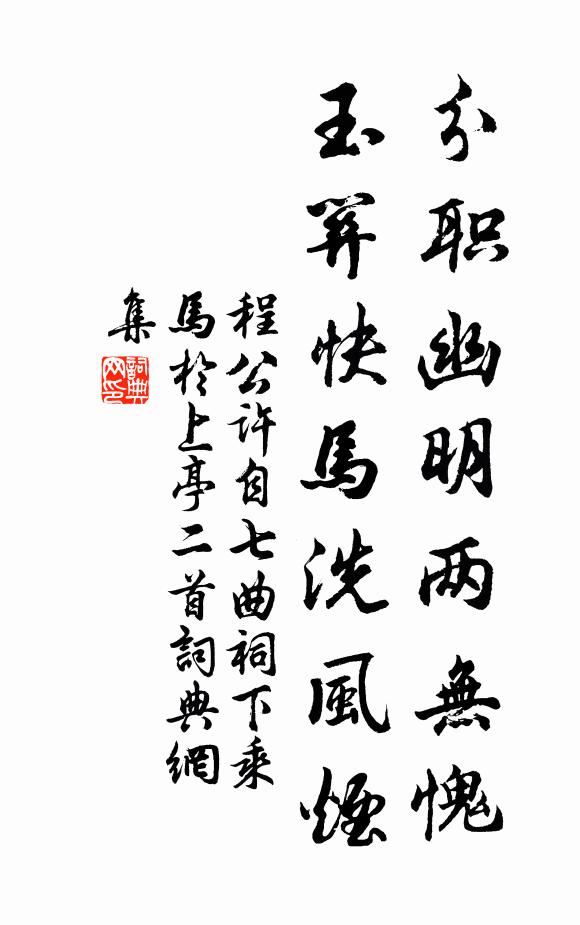 分职幽明两無愧
玉筭快馬洗風煙
程公許自七曲祠下乘
馬於上亭二首詞典網
集
詞典
网印